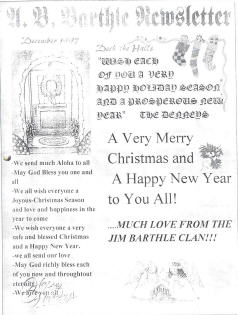 A. B. Barthle Newsletter
December 1997
Deck the Halls
"WISH EACH
OF YOU A VERY
HAPPY HOLIDAY SEASON
AND A PROSPEROUS NEW
YEAR" THE DENNEYS
A Very Merry
Christmas and
A Happy New Year
to You All!
....MUCH LOVE FROM THE
JIM BARTHLE CLAN!!!
-We send much Aloha to all
-May God Bless you one and
all
-We all wish everyone a
Joyous-Christmas Season
and love and happiness in the
year to come
-We wish everyone a very
safe and blessed Christmas
and a Happy New Year.
-we all send our love
-May God richly bless each
of you now and throughtout
eternity
-We love you all